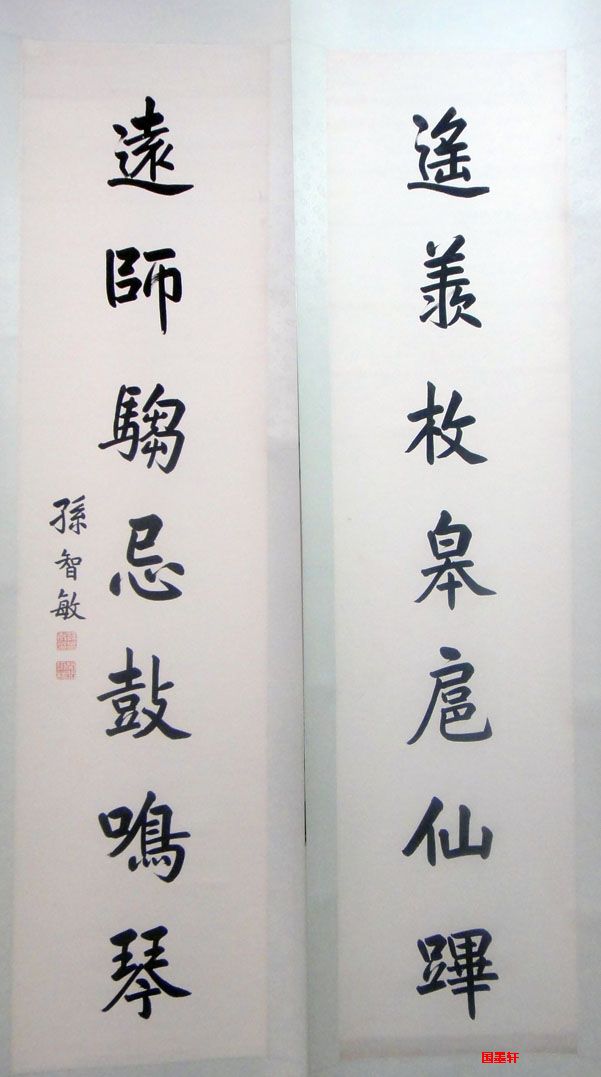 遙羨枚皋扈仙蹕
遠師騶忌鼓鳴琴
孫智敏
国墨轩